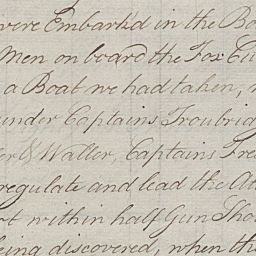 were Embark'd in the Bo
Men on board the Fox Cu
a Boat we had taken,
under Captains Troubrid
Waller, Captains Fre
regulate and lead the At
within half Gun Sho
being discovered, when the